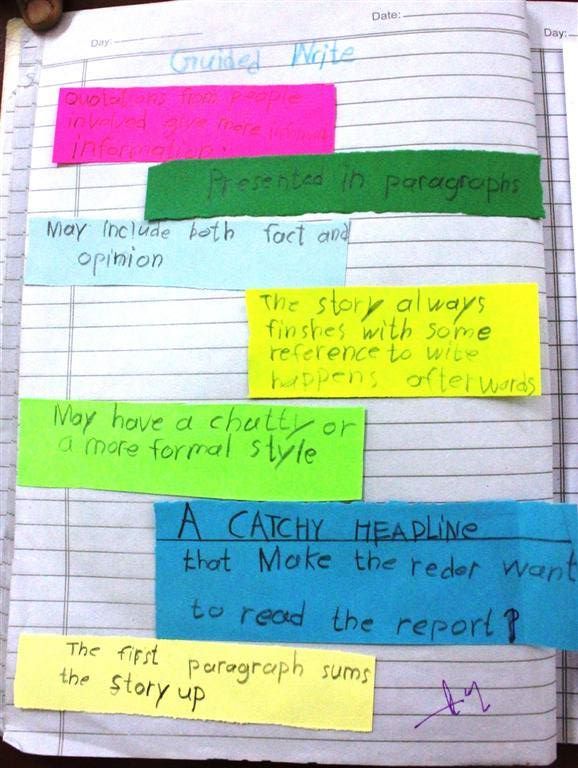 Date:
Day:
Day:
Guided Write
Quotations from people
involved give more
information.
Presented in paragraphs
May include both fact and
opinion
The story always
finshes with some
reference to wite
happens afterwords
May have a chatty or
a more formal style
A CATCHY HEADLINE
that Make the reder want
to read the report
The first paragraph sums
the story up